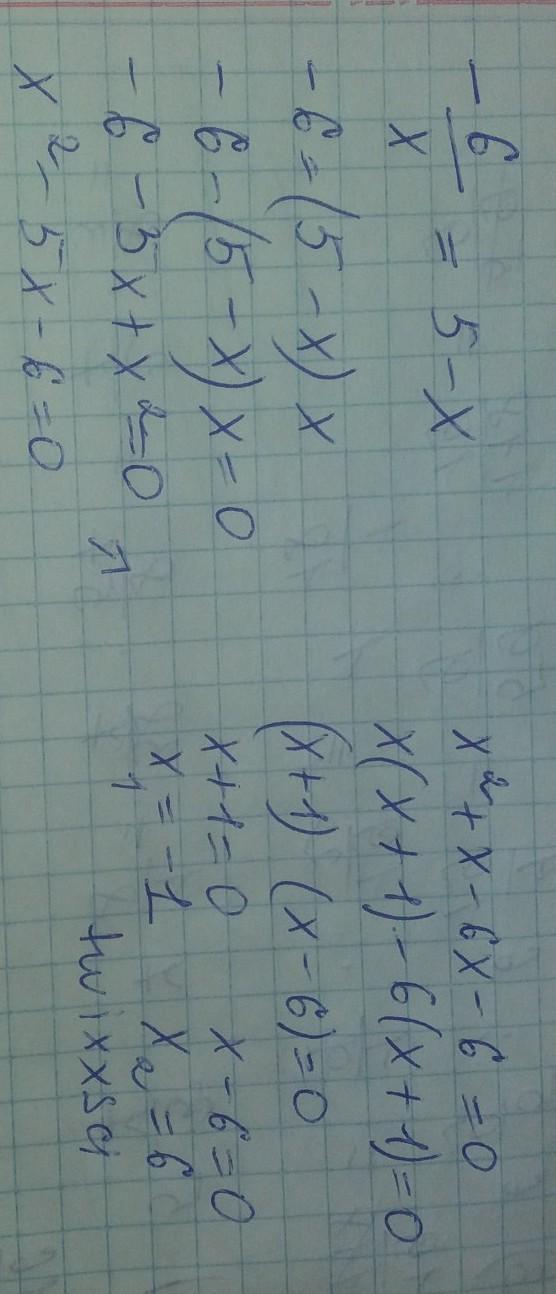 -6/x = 5-x
-6=(5-x)x
-6-(5-x)x=0
-6-5x+x²=0
x²-5x-6=0
x²+x-6x-6=0
x(x+1)-6(x+1)=0
(x+1)(x-6)=0
x+1=0 x-6=0
x₁=-1 x₂=6